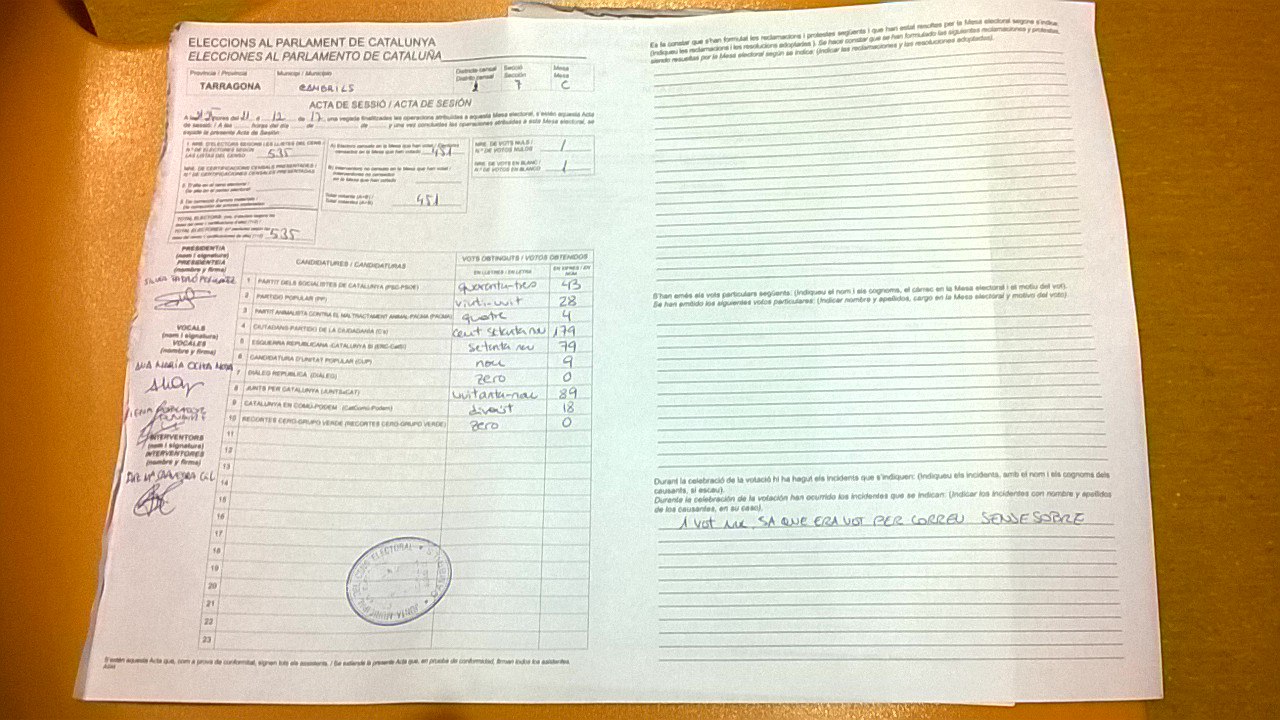 ELECCIONS AL PARLAMENT DE CATALUNYA
ELECCIONES AL PARLAMENTO DE CATALUÑA
Província / Provincia
TARRAGONA
Municipi / Municipio
CAMBRILS
Districte censal
Distrito censal
1
Secció
Sección
7
Mesa
Mesa
C
ACTA DE SESSIÓ / ACTA DE SESIÓN
hores del 21 d 12 de 17, una vegada finalitzades les operacions atribuïdes a aquesta Mesa electoral, s'estén aquesta Acta
de sessió. / A las horas del día de de y una vez concluidas las operaciones atribuidas a esta Mesa electoral, se
expide la presente Acta de Sesión
1. NRE. D'ELECTORS SEGONS LES LLISTES DEL CENS /
N.º DE ELECTORES SEGÚN
LAS LISTAS DEL CENSO
535
NRE. DE CERTIFICACIONS CENSALS PRESENTADES /
N.º DE CERTIFICACIONES CENSALES PRESENTADAS
535
451
Total votants (A+B) /
Total votantes (A+B)
451
NRE. DE VOTS NULS /
N.º DE VOTOS NULOS
1
NRE. DE VOTS EN BLANC /
N.º DE VOTOS EN BLANCO
1
PRESIDENTIA
(nom i signatura)
PRESIDENTE/A
(nombre y firma)
VOCALS
(nom i signatura)
VOCALES
(nombre y firma)
ANA MARIA
INTERVENTORS
(nom i signatura)
INTERVENTORES
(nombre y firma)
CANDIDATURES / CANDIDATURAS
VOTS OBTINGUTS / VOTOS OBTENIDOS
EN LLETRES / EN LETRA
EN XIFRES / EN NÚM.
1 PARTIT DELS SOCIALISTES DE CATALUNYA (PSC-PSOE) quaranta-tres 43
2 PARTIDO POPULAR (PP) vint-i-vuit 28
3 PARTIT ANIMALISTA CONTRA EL MALTRACTAMENT ANIMAL-PACMA (PACMA) quatre 4
4 CIUTADANS-PARTIDO DE LA CIUDADANÍA (C's) cent setanta nou 179
5 ESQUERRA REPUBLICANA-CATALUNYA SÍ (ERC-CatSí) setanta nou 79
6 CANDIDATURA D'UNITAT POPULAR (CUP) nou 9
7 DIÀLEG REPÚBLICA (DIÀLEG) zero 0
8 JUNTS PER CATALUNYA (JUNTSxCAT) vuitanta-nou 89
9 CATALUNYA EN COMÚ-PODEM (CatComú-Podem) divuit 18
10 RECORTES CERO-GRUPO VERDE (RECORTES CERO-GRUPO VERDE) zero 0
11
12
13
14
15
16
17
18
19
20
21
22
23
S'estén aquesta Acta que, com a prova de conformitat, signen tots els assistents. / Se extiende la presente Acta que, en prueba de conformidad, firman todos los asistentes.
Es fa constar que s'han formulat les reclamacions i protestes següents i que han estat resoltes per la Mesa electoral segons s'indica:
(Indiqueu les reclamacions i les resolucions adoptades). Se hace constar que se han formulado las siguientes reclamaciones y protestas,
siendo resueltas por la Mesa electoral según se indica: (Indicar las reclamaciones y las resoluciones adoptadas).
S'han emès els vots particulars següents: (Indiqueu el nom i els cognoms, el càrrec en la Mesa electoral i el motiu del vot).
Se han emitido los siguientes votos particulares: (Indicar nombre y apellidos, cargo en la Mesa electoral y motivo del voto)
Durant la celebració de la votació hi ha hagut els incidents que s'indiquen: (Indiqueu els incidents, amb el nom i els cognoms dels
causants, si escau).
Durante la celebración de la votación han ocurrido los incidentes que se indican: (Indicar los incidentes con nombre y apellidos
de los causantes, en su caso).
1 VOT JA QUE ERA VOT PER CORREU SENSE SOBRE